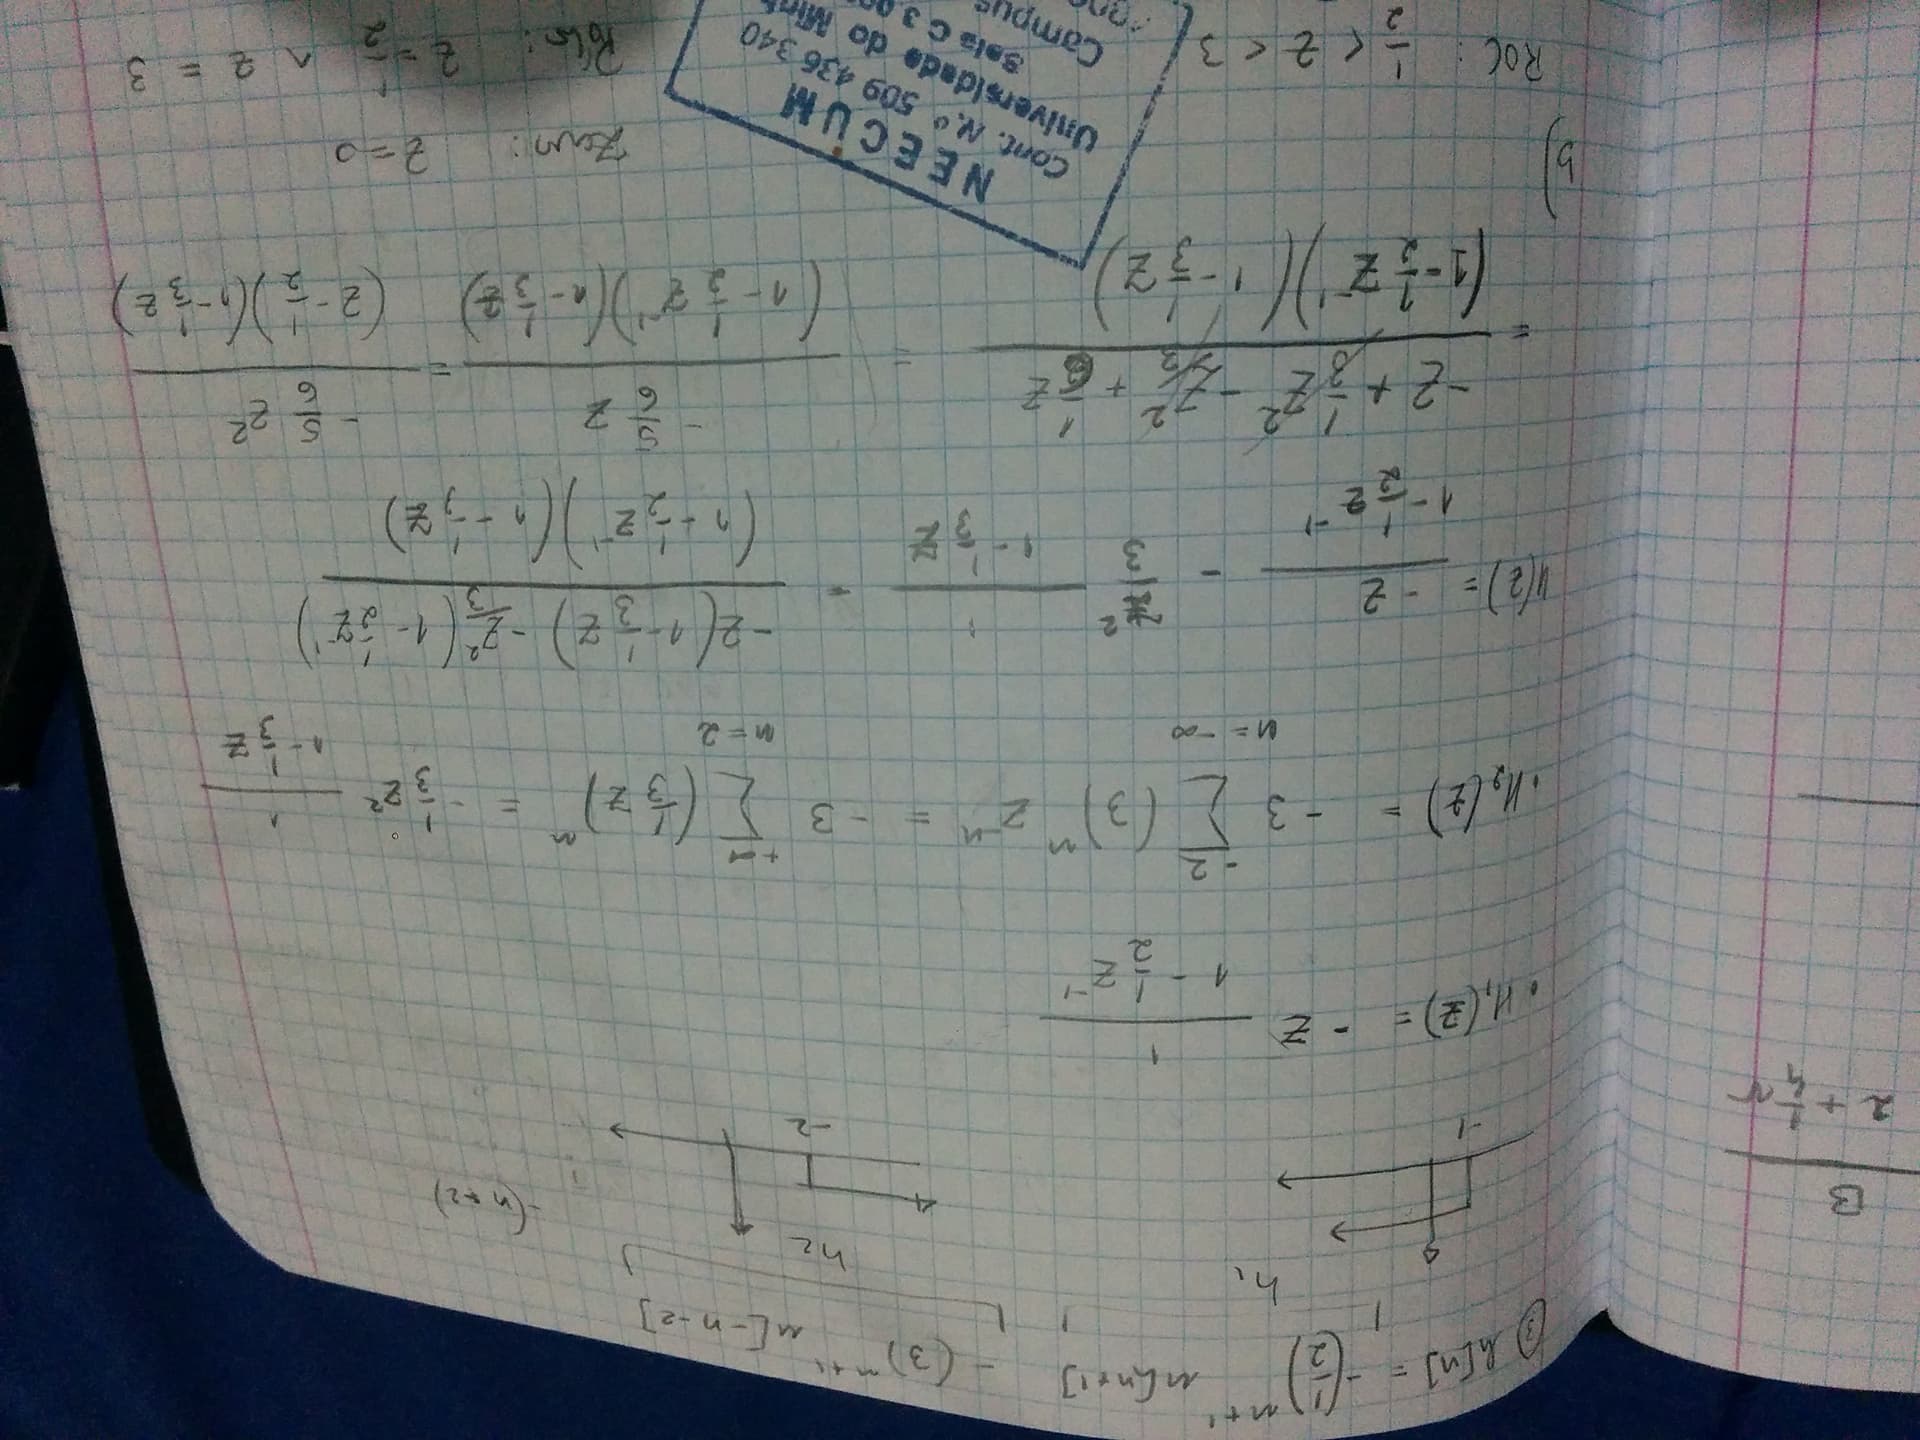 B
2 + 1/4
③ h[n] = -(1/2)^{n+1} u[n+1] - (3)^{n+1} u[-n-2]
h₁
h₂
-(n+2)
-1
-2
• H₁(z) = - z 1/(1 - 1/2 z⁻¹)
• H₂(z) = -3 ∑_{n=-∞}^{-2} (3)ⁿ z⁻ⁿ = -3 ∑_{n=2}^{+∞} (1/3 z)ⁿ = -1/3 z² 1/(1 - 1/3 z)
H(z) = -z/(1 - 1/2 z⁻¹) - z²/3 1/(1 - 1/3 z) = (-z(1 - 1/3 z) - z²/3 (1 - 1/2 z⁻¹))/((1 - 1/2 z⁻¹)(1 - 1/3 z))
= (-z + 1/3 z² - z²/3 + 1/6 z)/((1 - 1/2 z⁻¹)(1 - 1/3 z)) = (-5/6 z)/((1 - 1/2 z⁻¹)(1 - 1/3 z)) = (-5/6 z²)/((z - 1/2)(1 - 1/3 z))
b)
ROC: 1/2 < z < 3
z = 0
z = 1/2 ∧ z = 3
NEECUM
Cont. N.º 509 436 340
Universidade do Minh
Sala C 3.00
Campus